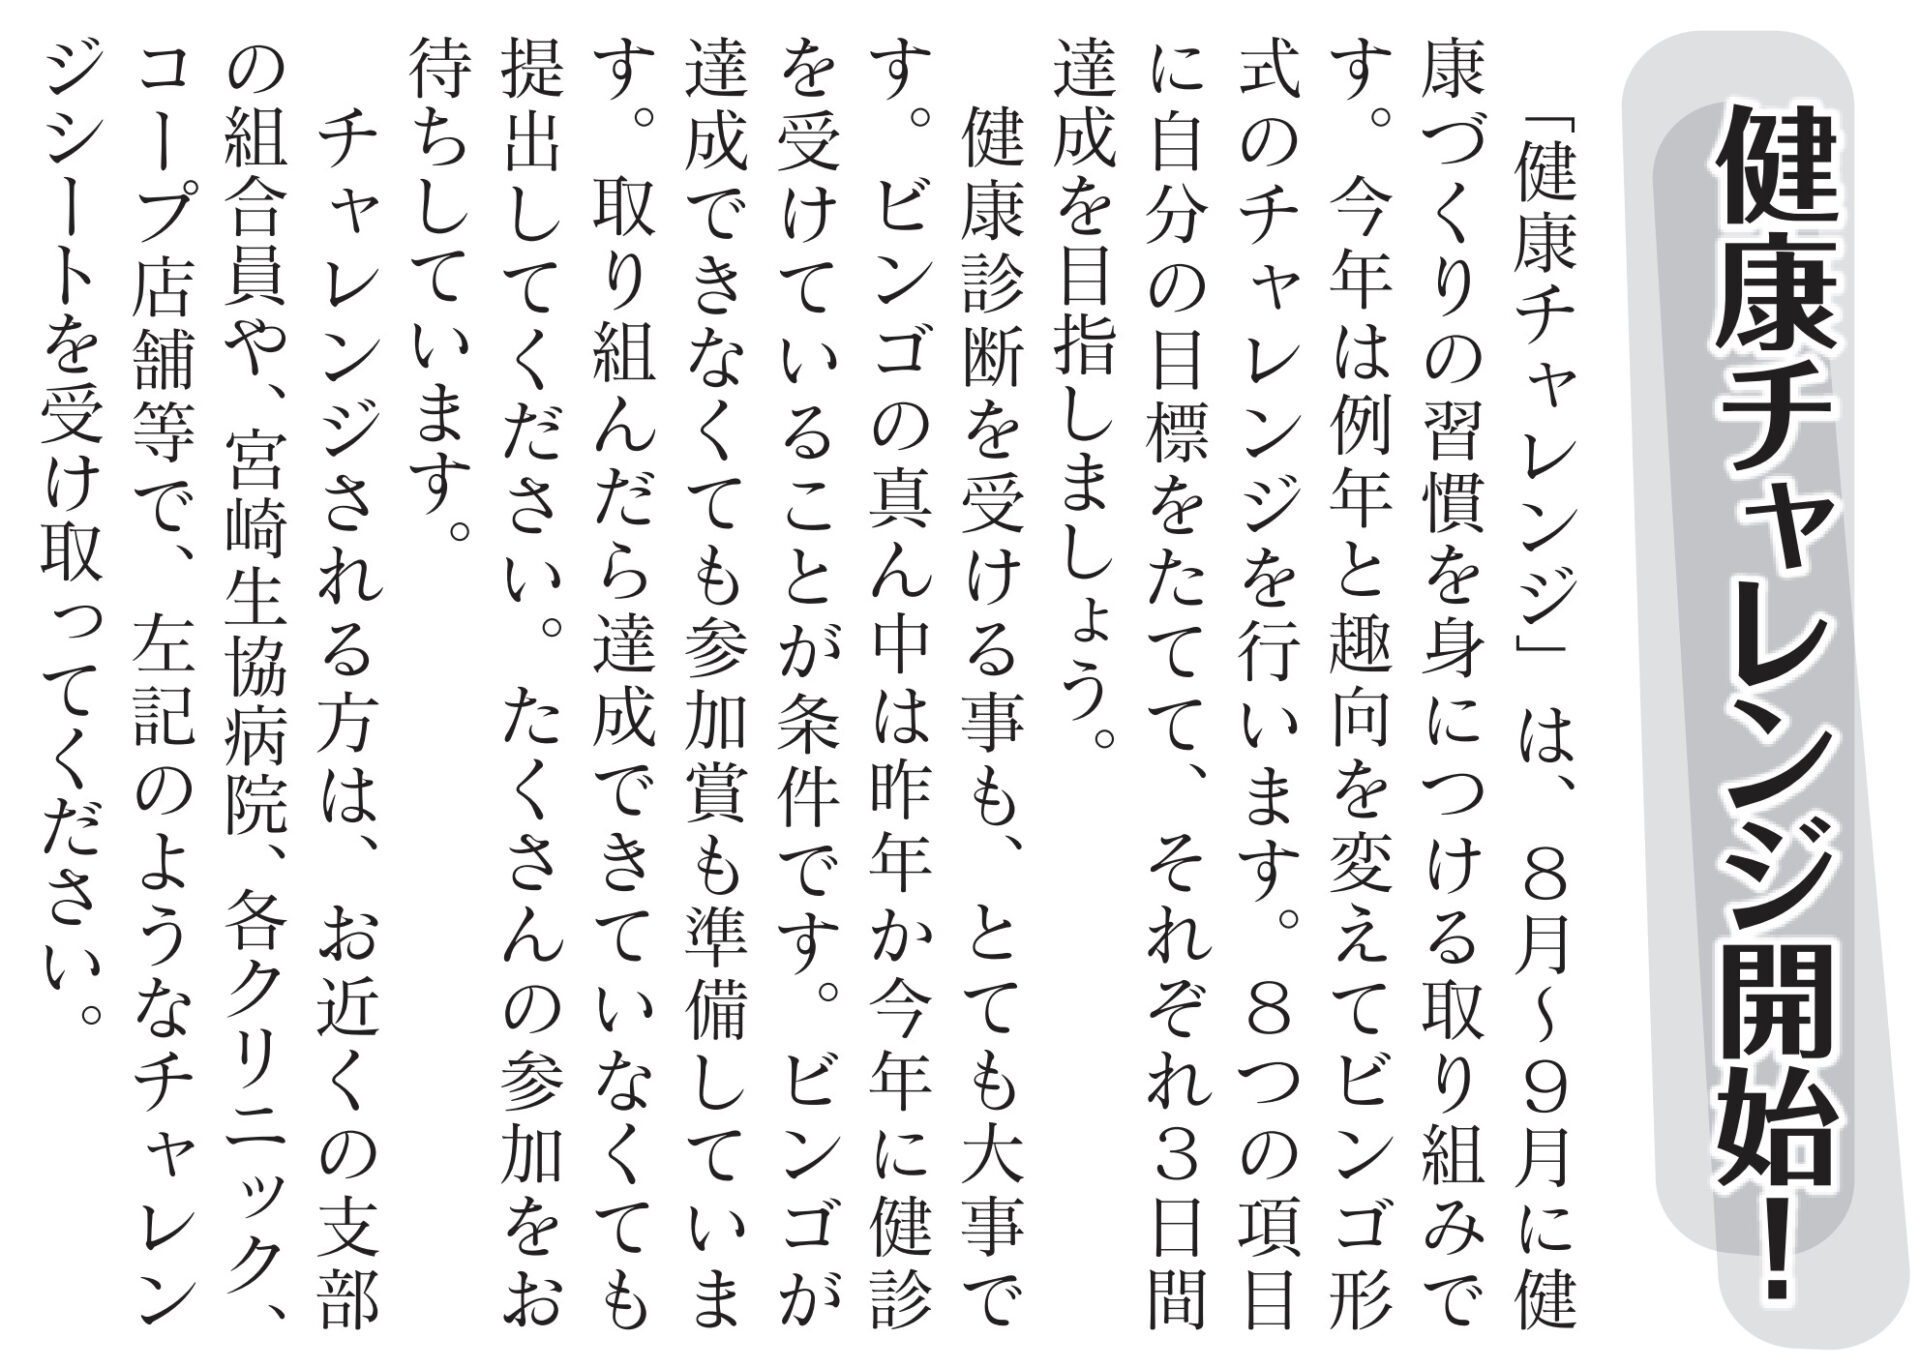 健康チャレンジ開始！
「健康チャレンジ」は、８月～９月に健
康づくりの習慣を身につける取り組みで
す。今年は例年と趣向を変えてビンゴ形
式のチャレンジを行います。８つの項目
に自分の目標をたてて、それぞれ３日間
達成を目指しましょう。
健康診断を受ける事も、とても大事で
す。ビンゴの真ん中は昨年か今年に健診
を受けていることが条件です。ビンゴが
達成できなくても参加賞も準備していま
す。取り組んだら達成できていなくても
提出してください。たくさんの参加をお
待ちしています。
チャレンジされる方は、お近くの支部
の組合員や、宮崎生協病院、各クリニック、
コープ店舗等で、左記のようなチャレン
ジシートを受け取ってください。